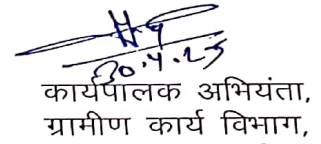 30.4.25
कार्यपालक अभियंता,
ग्रामीण कार्य विभाग,